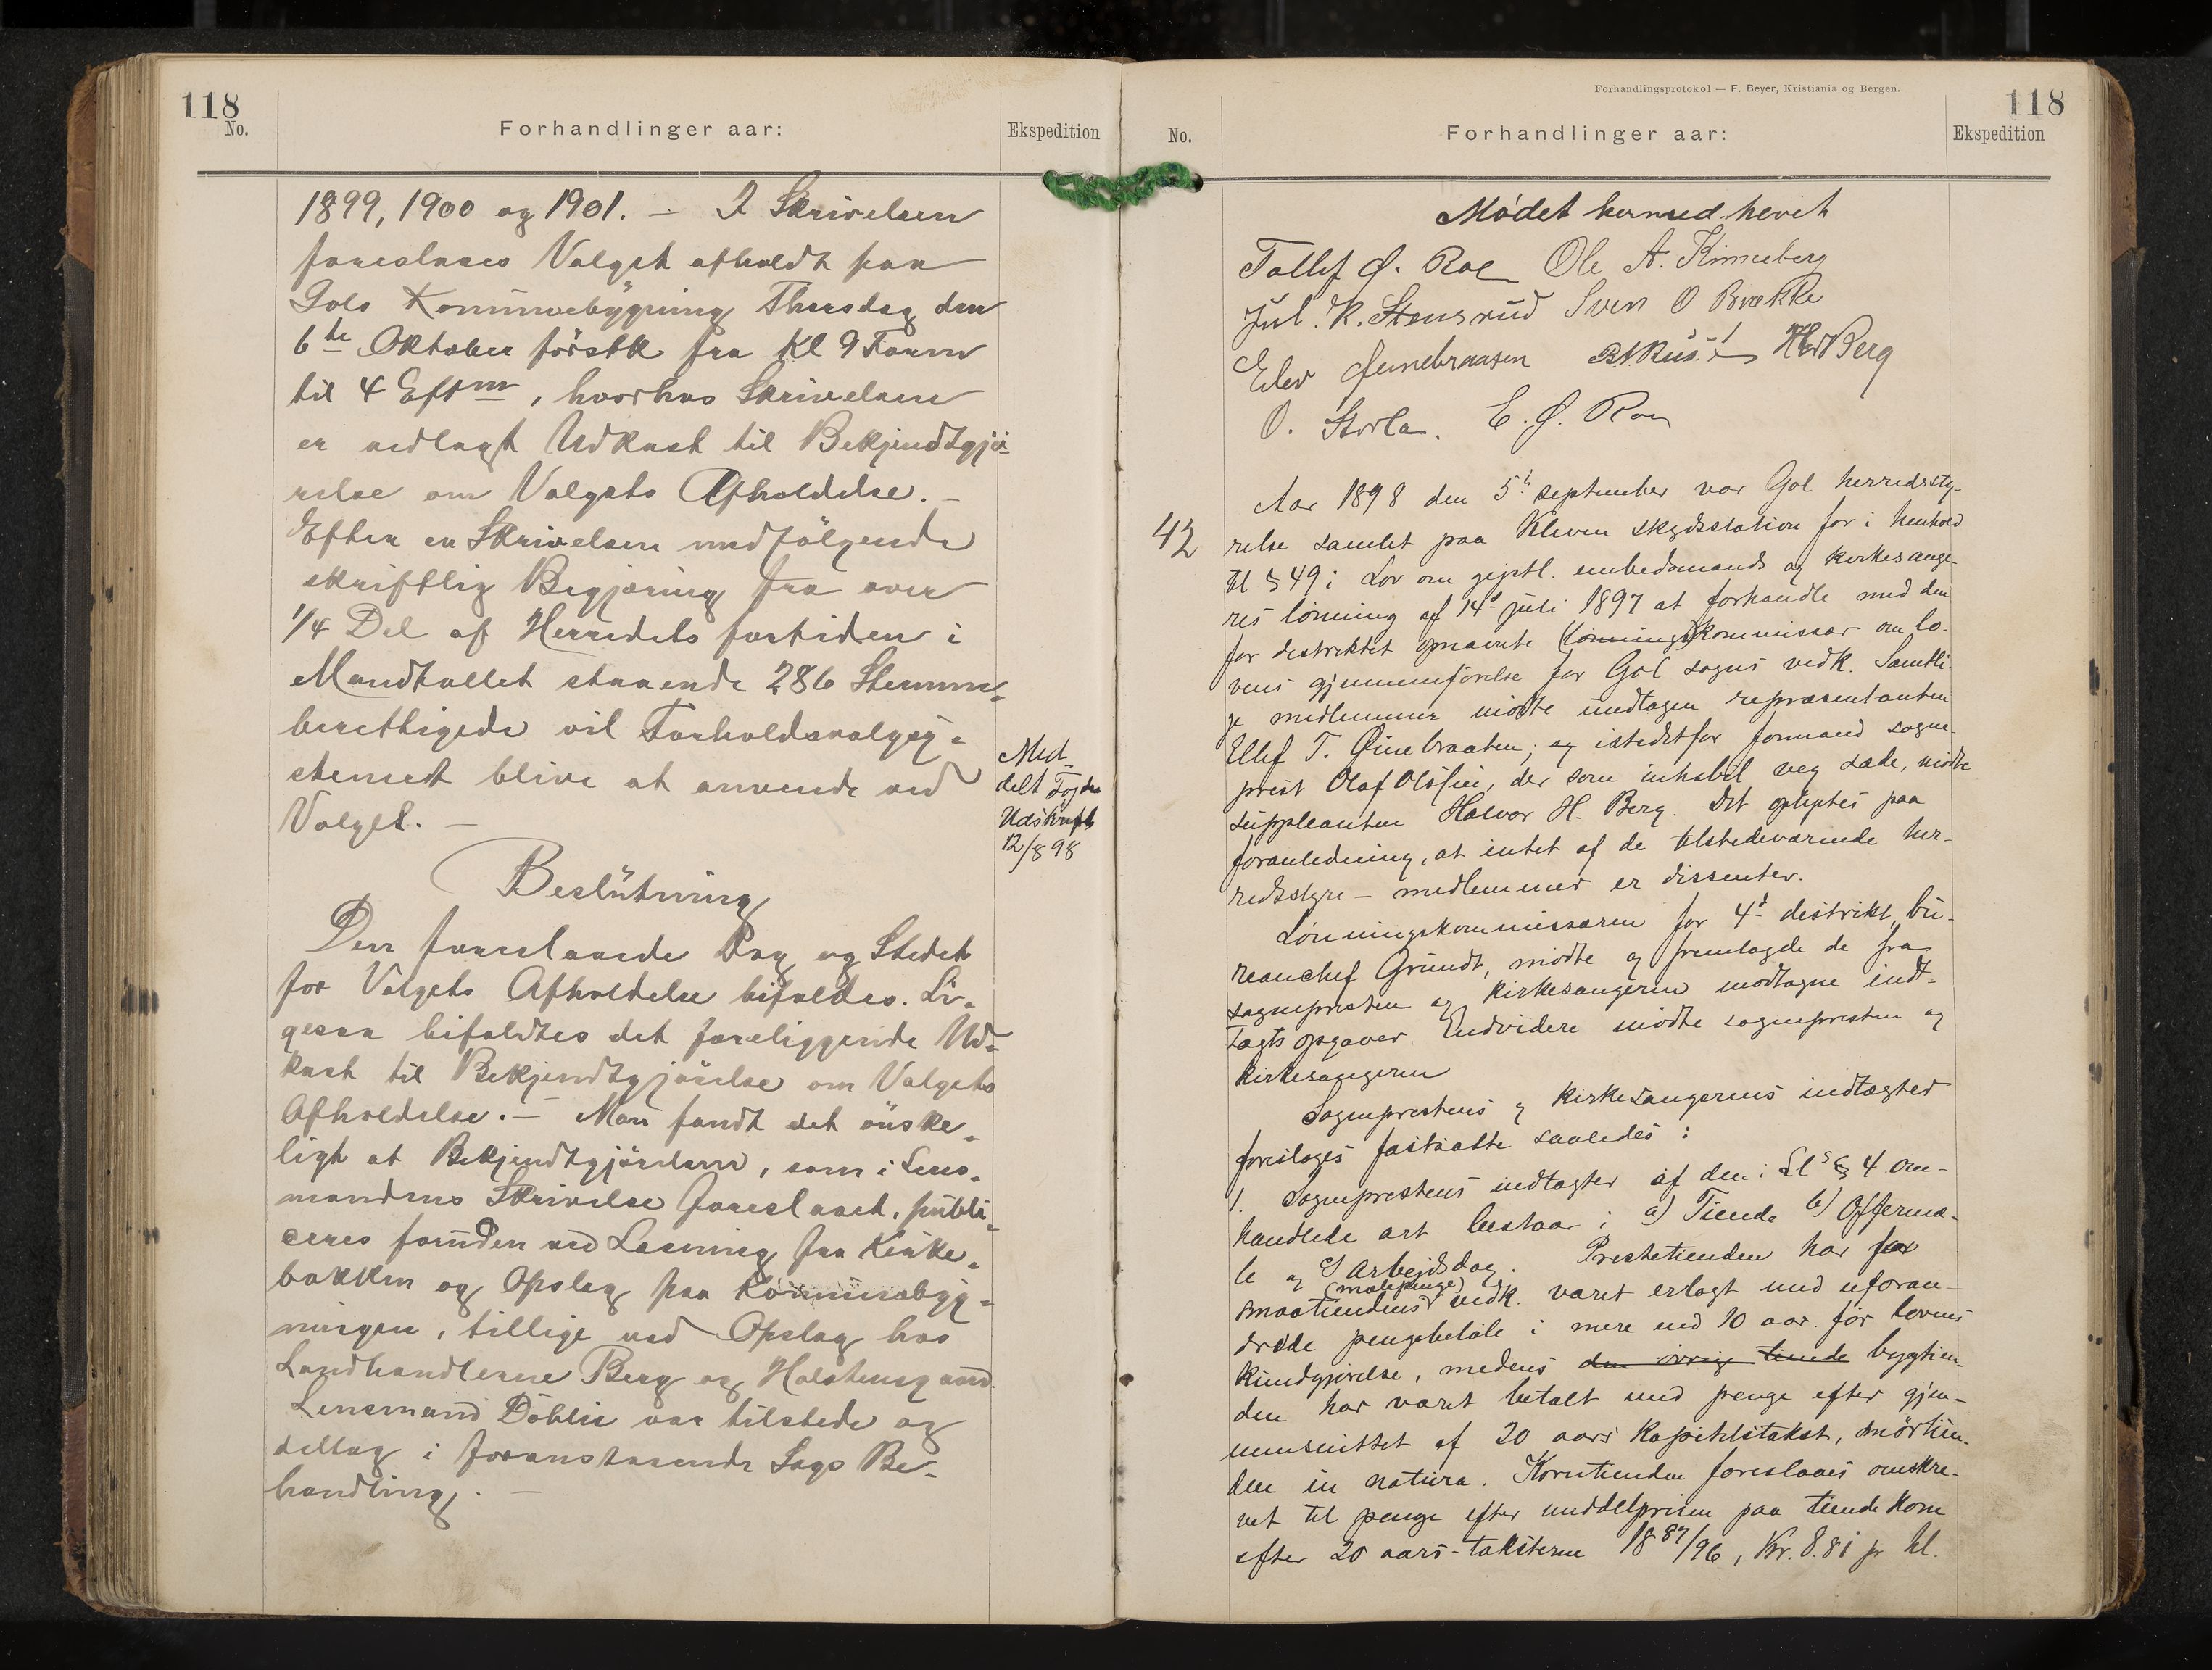 118
No.
Forhandlinger aar:
Ekspedition
1899, 1900 og 1901. — I Skrivelsen
foreslaaes Valget afholdt paa
Gols Kommunebygning Thorsdag den
6te Oktober förstk fra Kl 9 Form
til 4 Eftm, hvorhos Skrivelsen
er vedlagt Udkast til Bekjendtgjö-
relse om Valgets Afholdelse. —
Efter en Skrivelsen medfölgende
skriftlig Begjæring fra over
1/4 Del af Herredets fortiden i
Mandtallet staaende 286 Stemme-
berettigede vil Forholdsvalgsy-
stemet blive at anvende ved
Valget. —
Med-
delt Fogden
Udskrift
12/8 98
Beslutning
Den foreslaaede Dag og Stedet
for Valgets Afholdelse bifaldes. Li-
gesaa bifaldtes det foreliggende Ud-
kast til Bekjendtgjörelse om Valgets
Afholdelse. — Man fandt det önske-
ligt at Bekjendtgjörelsen, som i Lens-
mandens Skrivelse foreslaaet, publi-
ceres foruden ved Læsning fra Kirke-
bakken og Opslag paa Kommunebyg-
ningen, tillige ved Opslag hos
Landhandlerne Berg og Halstensgaard.
Lensmand Döhlie var tilstede og
deltog i foranstaaende Sags Be-
handling. —
Forhandlingsprotokol — F. Beyer, Kristiania og Bergen.
118
No.
Forhandlinger aar:
Ekspedition
Mödet hermed hevet
Tollef Ø. Roe Ole A. Kinneberg
Jul. K. Stensrud Sven O Brække
Elev HH Berg
O. Storla. E. Ø. Roe
Aar 1898 den 5te september var Gol herredssty-
42
relse samlet paa Kleven skydsstation for i henhold
til § 49 i Lov om gejstl. embedsmænds og kirkesange-
res lönning af 14de juli 1897 at forhandle med den
for distriktet opnævnte (lönnings)kommissær om lo-
vens gjennemförelse for Gol sogns vedk. Samtli-
ge medlemmer mödte undtagen repræsentanten
Ellef T. Øinebraaten; og istedetfor formand sogne-
prest Olaf Olssen, der som inhabil veg sæde, mödte
suppleanten Halvor H. Berg. Det oplystes paa
foranledning, at intet af de tilstedeværende her-
redsstyre - medlemmer er dissenter.
Lönningskommissæren for 4de distrikt, bu-
reauchef Grundt, mödte og fremlagde de fra
sognepresten og kirkesangeren modtagne ind-
tægts opgaver. Endvidere mödte sognepresten og
kirkesangeren
Sogneprestens og kirkesangerens indtægter
foreslaaes fastsatte saaledes:
1. Sogneprestens indtægter af den i Ls § 4 om-
handlede art bestaar i a) Tiende b) Offerma-
le og c) Arbejdsdag. Prestetienden har for
(malepenge)
smaatiendens vedk. været erlagt med uforan-
drede pengebelöb i mere end 10 aar för lovens
kundgjörelse, medens den övrige tiende bygtien-
den har været betalt med penge efter gjen-
nemsnittet af 20 aars kapitelstakst, smörtien-
den in natura. Korntienden foreslaaes omskre-
vet til penge efter middelprisen paa tiendekorn
efter 20 aars-taksterne 1887/96, Kr. 8.81 pr hl.